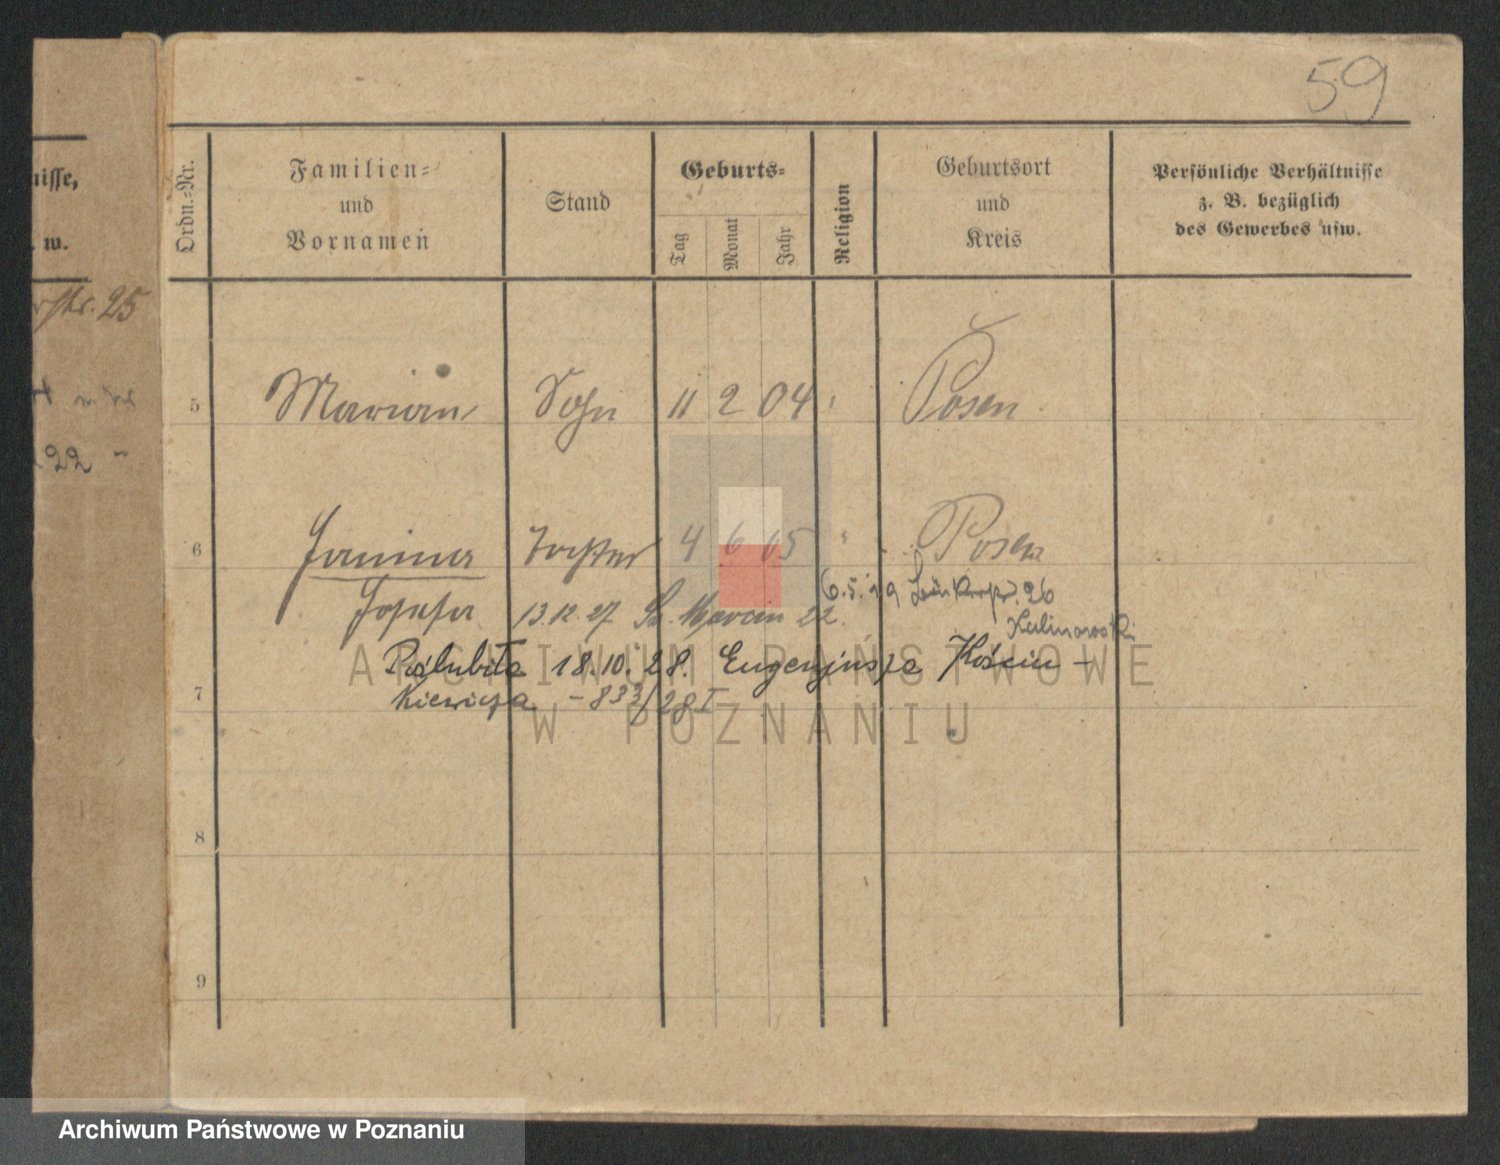 59
nisse,
. w.
rstr. 25
22 "
Ordn.=Nr.
Familien=
und
Vornamen
Stand
Geburts=
Tag
Monat
Jahr
Religion
Geburtsort
und
Kreis
Persönliche Verhältnisse
z. B. bezüglich
des Gewerbes usw.
5 Marian Sohn 11 2 04 Posen
6 Janina Tochter 4 6 05 " Posen
6.5.19 26
Josefa 13.12.27 Św. Marcin 22.
Kalinowski
Poślubiła 18.10.28. Eugenjusza Kościu-
7
kiewicza - 833/28 I
8
9
ARCHIWUM PAŃSTWOWE
W POZNANIU
Archiwum Państwowe w Poznaniu